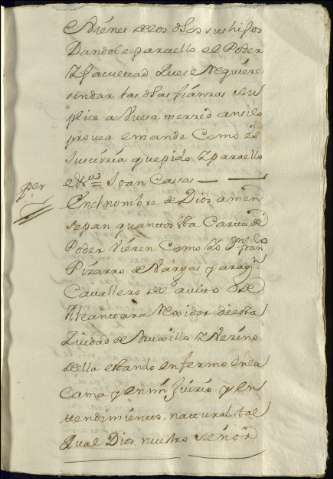 vienes de los dhos sus hijos
Dandole para ello el Poder
y facultad que se Requiere
rindar las dhas fianzas su
plico a Vuesa merced ansi lo
provea e mande Como es
Justicia que pido y para ello
etta = Joan Casas
per
En el nombre de Dios amen
sepan quantos esta Carta de
Poder vieren Como Yo Don Joan
Pizarro de Vargas y arag.n
Cavallero del avito de
Alcantara Rexidor desta
Ziudad de Truxillo Y Vezino
della estando enfermo en la
Cama y en mi Juicio y en
tendimiento natural tal
qual Dios nuestro señor